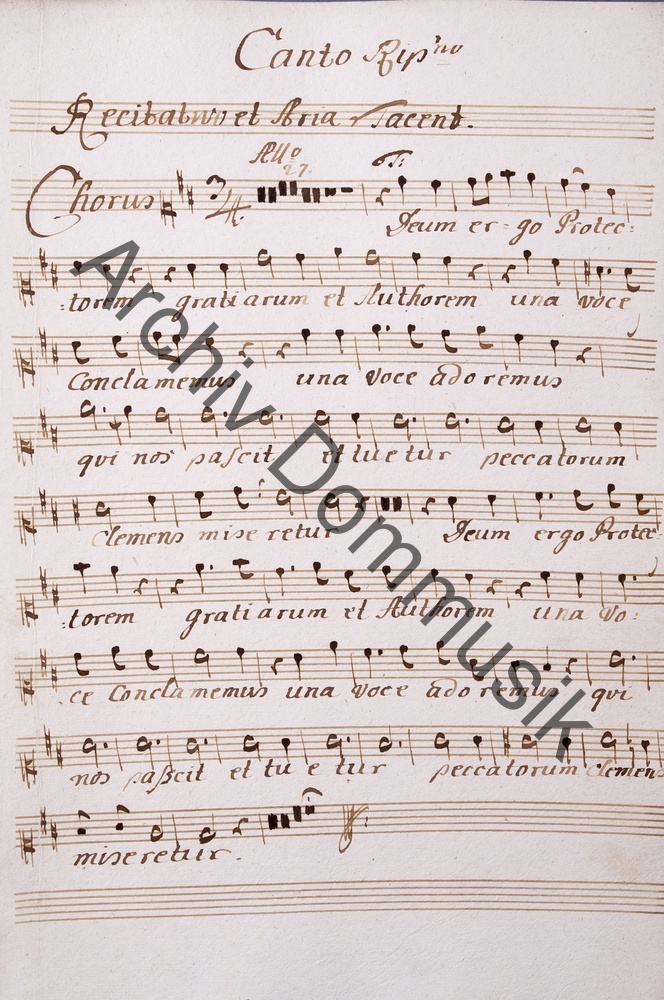 Canto Rip:no
Recitativo et Aria Tacent.
Allo
27.
T:
Chorus 3/4
Deum er=go Protec=
=torem gratiarum et Authorem una voce
Conclamemus una voce adoremus
qui nos pascit et tuetur peccatorum
Clemens miseretur Deum ergo Protec=
=torem gratiarum et Authorem una vo=
ce Conclamemus una voce adoremus qui
nos pascit et tuetur peccatorum Clemens
miseretur.
Archiv Dommusik